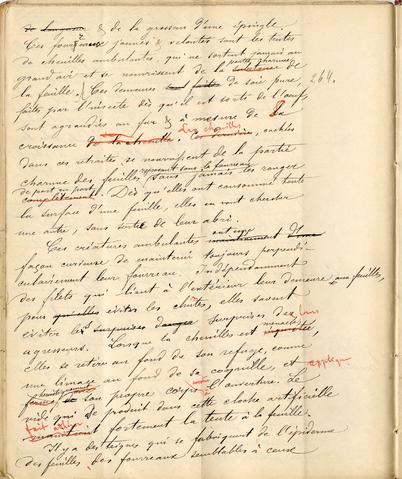 de longueur & de la grosseur d'une épingle
Ces fourreaux jaunes & veloutés sont les tentes
de chenilles ambulantes, qui ne sortent jamais au
grand air et se nourrissent de la partie charnue
substance de
la feuille. Ces demeures sont faites de soie pure, 264.
faites par l'insecte dès qu'il est sorti de l'oeuf,
sont agrandies au fur & à mesure de la
croissance de la chenille. Les chenilles cachées
dans ces retraites se nourrissent de la partie
charnue des feuilles sans jamais les ronger
reposant sous le fourreau
de part en part
complètement. Dès qu'elles ont consommé toute
la surface d'une feuille, elles en vont chercher
une autre, sans sortir de leur abri.
Ces créatures ambulantes ont une
façon curieuse de maintenir toujours perpendi-
culairement leur fourreau. Indépendamment
des filets qui lient à l'extérieur leur demeure aux feuilles,
pour éviter les chutes, elles savent
éviter les surprises des leurs
agresseurs. Lorsque la chenille est menacée
inquiétée
elle se retire au fond de son refuge, comme
une limace au fond de sa coquille, et applique
son propre corps à l'ouverture. Le
vide qui se produit dans cette cloche artificielle
fait adhérer
maintient fortement la tente à la feuille.
Il y a des teignes qui se fabriquent de l'épiderme
des feuilles, des fourreaux semblables à ceux